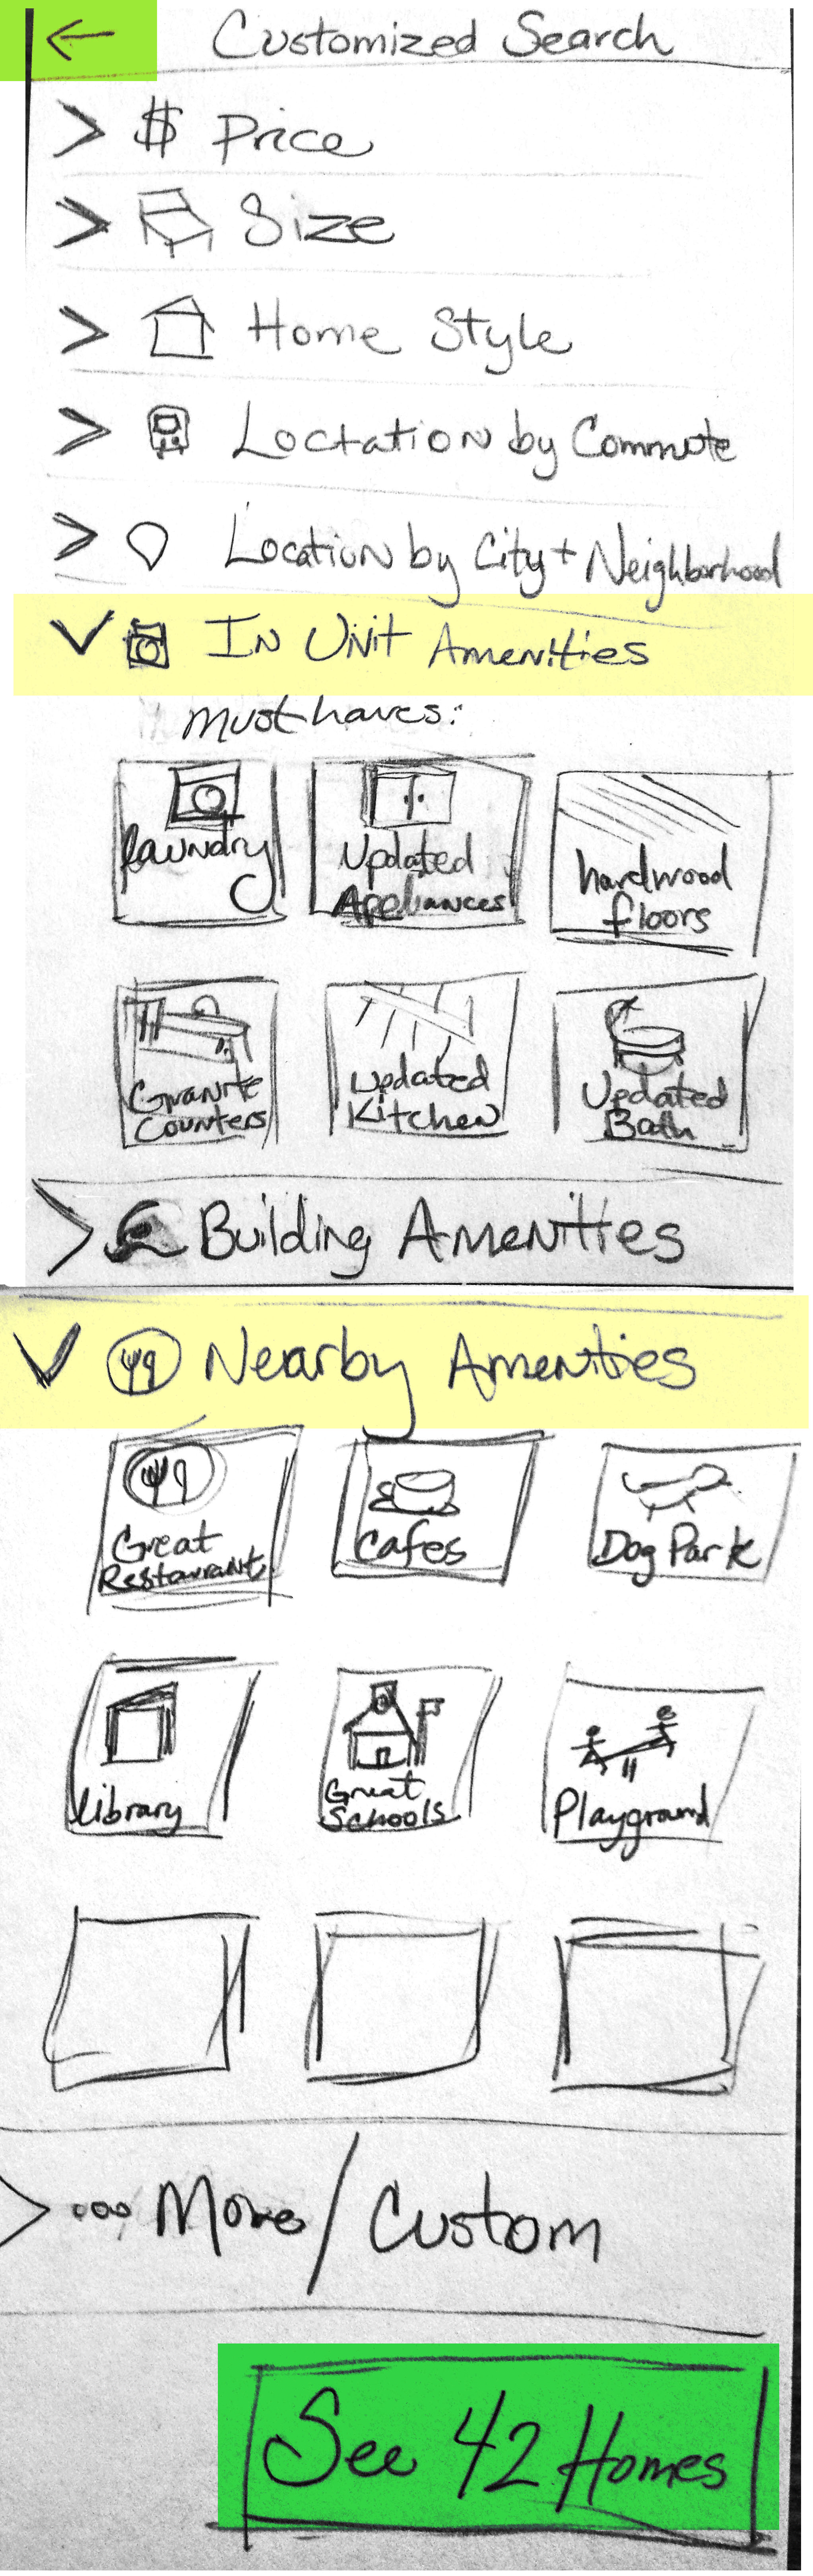 ← Customized Search
> $ Price
> Size
> Home Style
> Loctation by Commute
> Location by City + Neighborhood
In Unit Amenities
must haves:
laundry
Updated
Appliances
hardwood
floors
Granite
Counters
Updated
Kitchen
Updated
Bath
> Building Amenities
Nearby Amenities
Great
Restaurants
Cafes
Dog Park
library
Great
Schools
Playground
> ... More / Custom
See 42 Homes